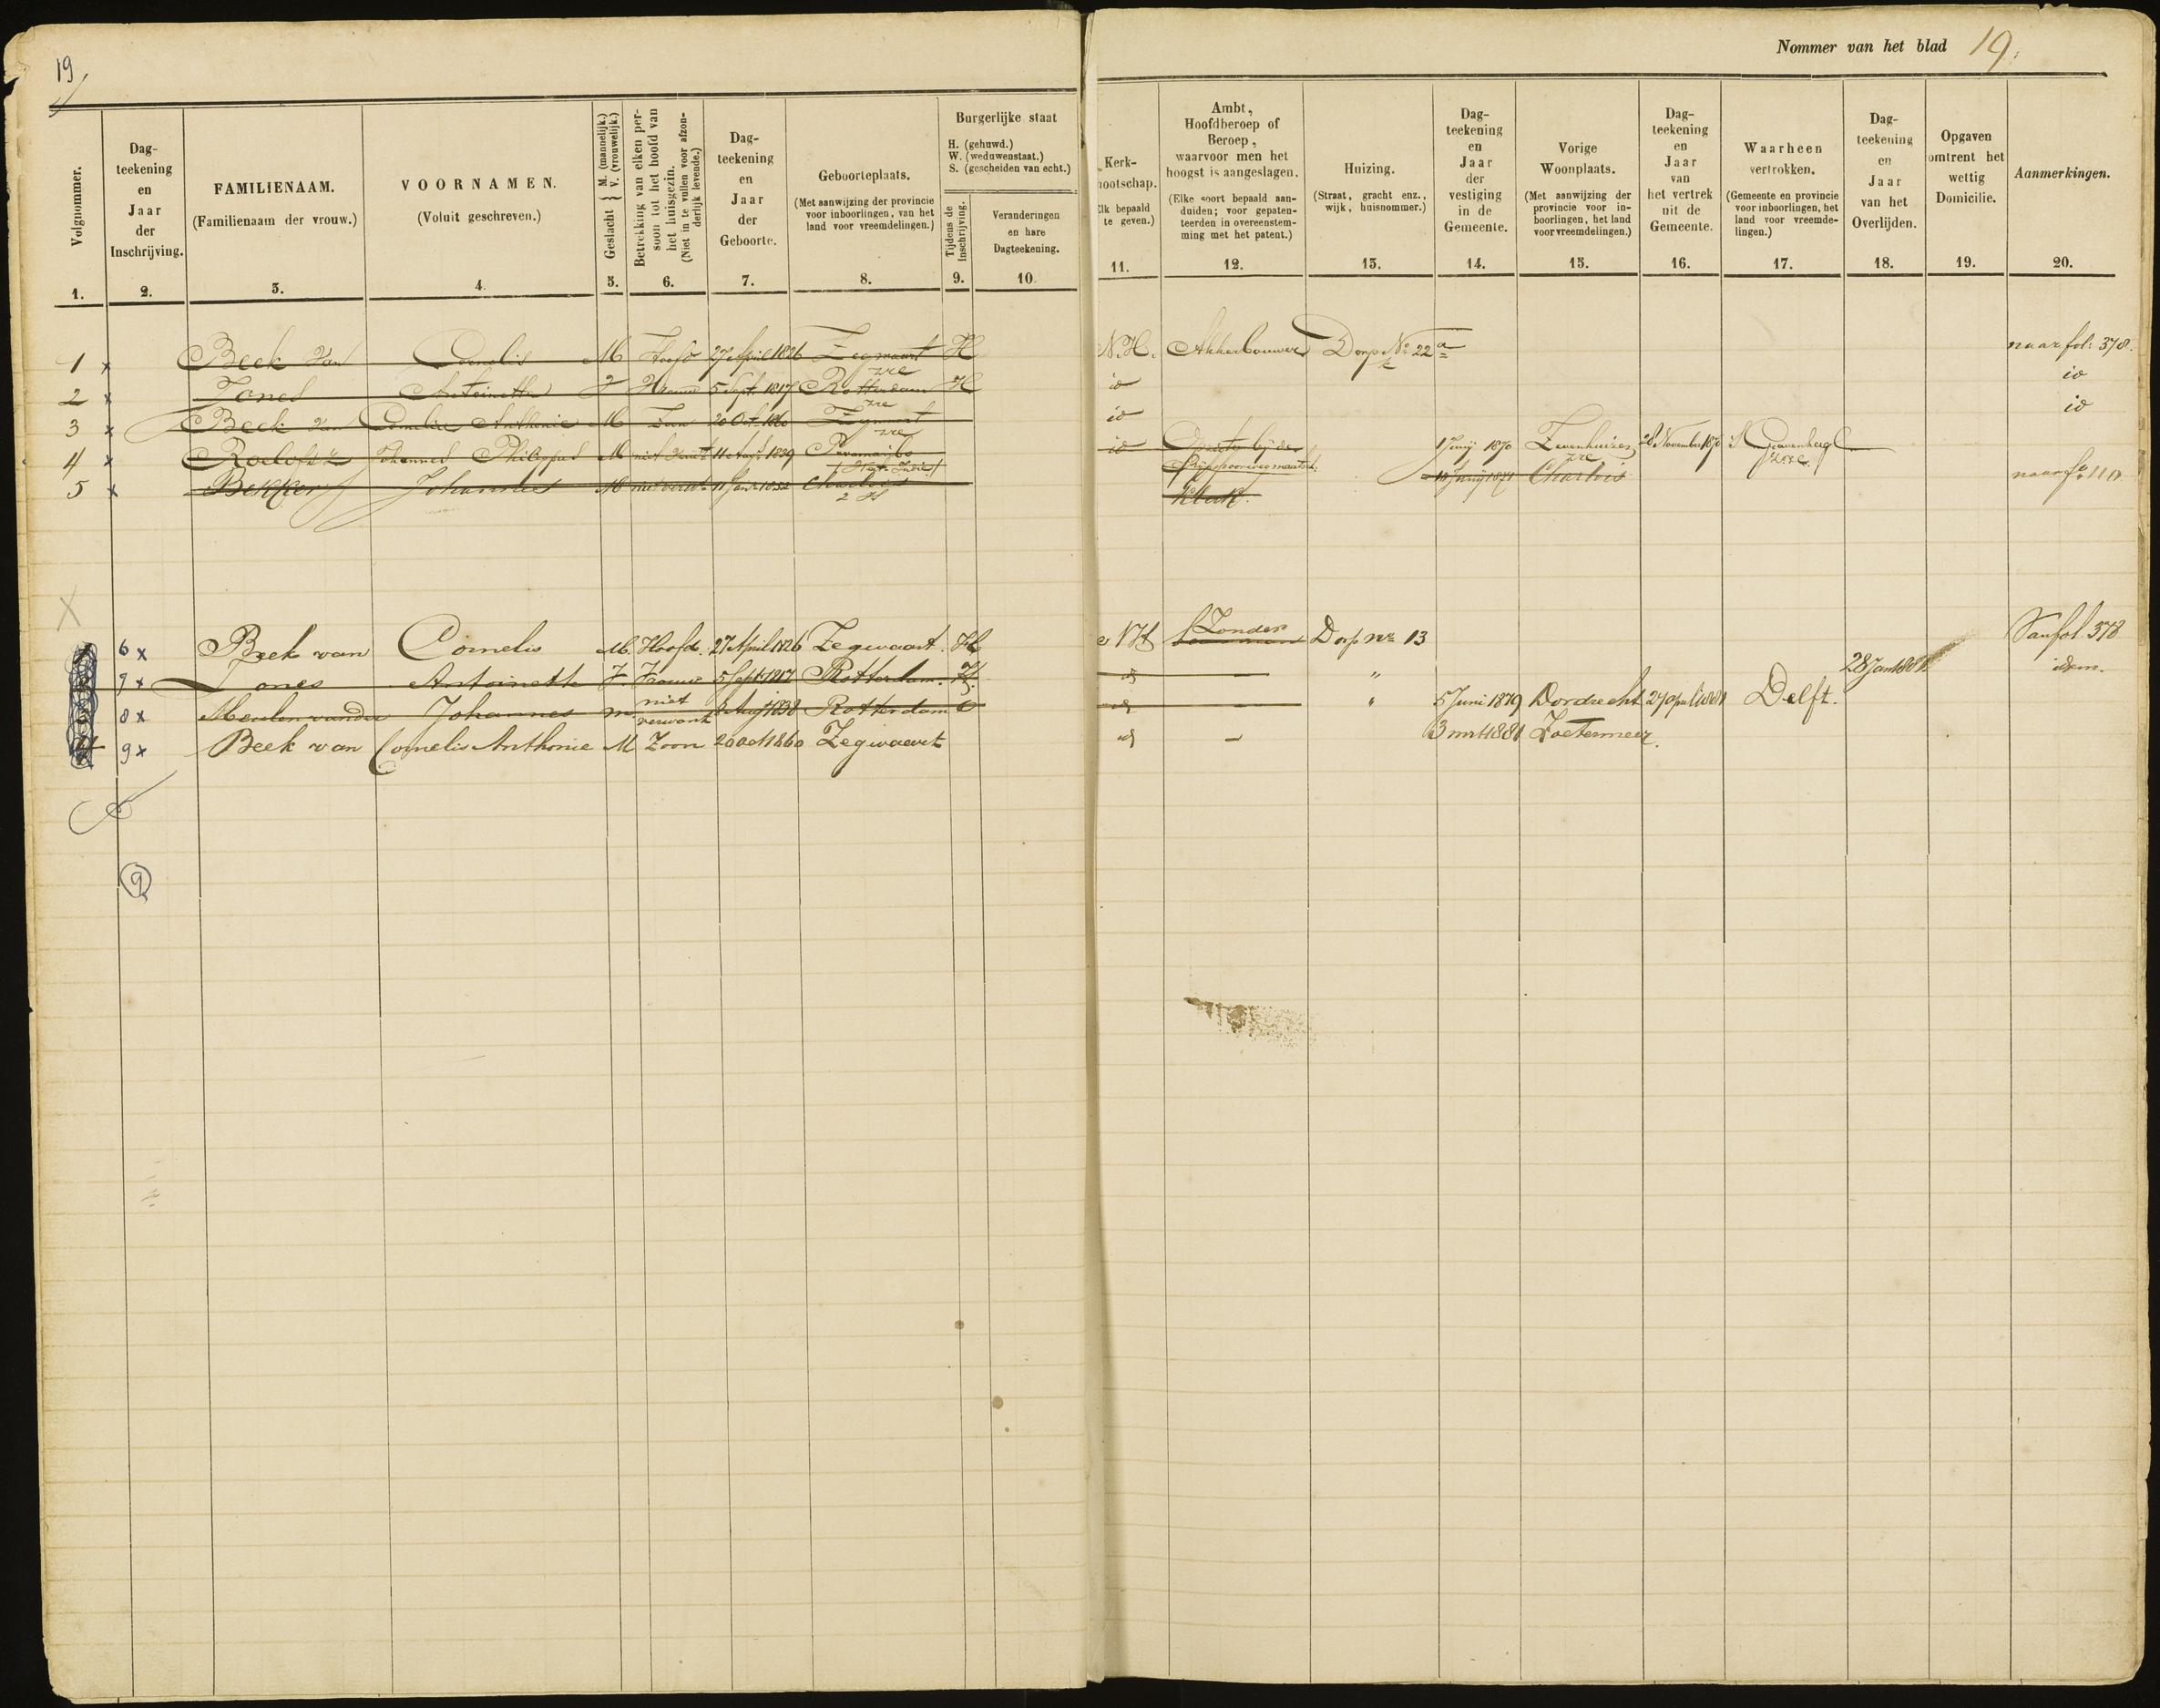 19
Nommer van het blad 19.
Volgnommer.
1.
Dag-
teekening
en
Jaar
der
Inschrijving.
2.
FAMILIENAAM.
(Familienaam der vrouw.)
3.
VOORNAMEN.
(Voluit geschreven.)
4.
Geslacht { M. (mannelijk.) V. (vrouwelijk.)
5.
Betrekking van elken per-
soon tot het hoofd van
het huisgezin.
(Niet in te vullen voor afzon-
derlijk levende.)
6.
Dag-
teekening
en
Jaar
der
Geboorte.
7.
Geboorteplaats.
(Met aanwijzing der provincie
voor inboorlingen, van het
land voor vreemdelingen.)
8.
Burgerlijke staat
H. (gehuwd.)
W. (weduwenstaat.)
S. (gescheiden van echt.)
Tijdens de
inschrijving.
9.
Veranderingen
en hare
Dagteekening.
10.
Kerk-
nootschap.
Elk bepaald
te geven.)
11.
Ambt,
Hoofdberoep of
Beroep,
waarvoor men het
hoogst is aangeslagen.
(Elke soort bepaald aan-
duiden; voor gepaten-
teerden in overeenstem-
ming met het patent.)
12.
Huizing.
(Straat, gracht enz.,
wijk, huisnommer.)
13.
Dag-
teekening
en
Jaar
der
vestiging
in de
Gemeente.
14.
Vorige
Woonplaats.
(Met aanwijzing der
provincie voor in-
boorlingen, het land
voor vreemdelingen.)
15.
Dag-
teekening
en
Jaar
van
het vertrek
uit de
Gemeente.
16.
Waarheen
vertrokken.
(Gemeente en provincie
voor inboorlingen, het
land voor vreemde-
lingen.)
17.
Dag-
teekening
en
Jaar
van het
Overlijden.
18.
Opgaven
omtrent het
wettig
Domicilie.
19.
Aanmerkingen.
20.
1 x Beek van Cornelis M Hoofd 27 April 1826 Zegwaart H N.H. Akkerbouwer Dorp No 22 a naar fol: 378.
zre
2 x Jones Antoinette V Vrouw 5 Sept. 1817 Rotterdam H id id
zre
3 x Beek van Cornelis Anthonie M Zoon 20 Oct. 1860 Zegwaart id id
zre
4 x Roelofsz Johannes Philippus M niet verw 11 Aug 1839 Paramaribo id 1 Junij 1870 Zevenhuizen 28 November 1870 S Gravenhage
zre zre
5 x Bekker Johannes M niet verw 11 Jan 1852 Charlois Klerk 1871 Charlois naar fo 110
6 x Beek van Cornelis M. Hoofd. 27 April 1826 Zegwaart. H NH Zonder Dorp no 13 Van fol. 378
7 x Jones Antoinette V. Vrouw 5 Sept 1817 Rotterdam. H. id — " 28 Jan 1881 idem.
8 x Meulen van der Johannes m. niet verwant Aug 1838 Rotterdam O id — " 5 Juni 1879 Dordrecht 27 April 1881 Delft.
9 x Beek van Cornelis Anthonie M Zoon 20 Oct 1860 Zegwaart id — 3 mrt 1881 Zoetermeer.
9